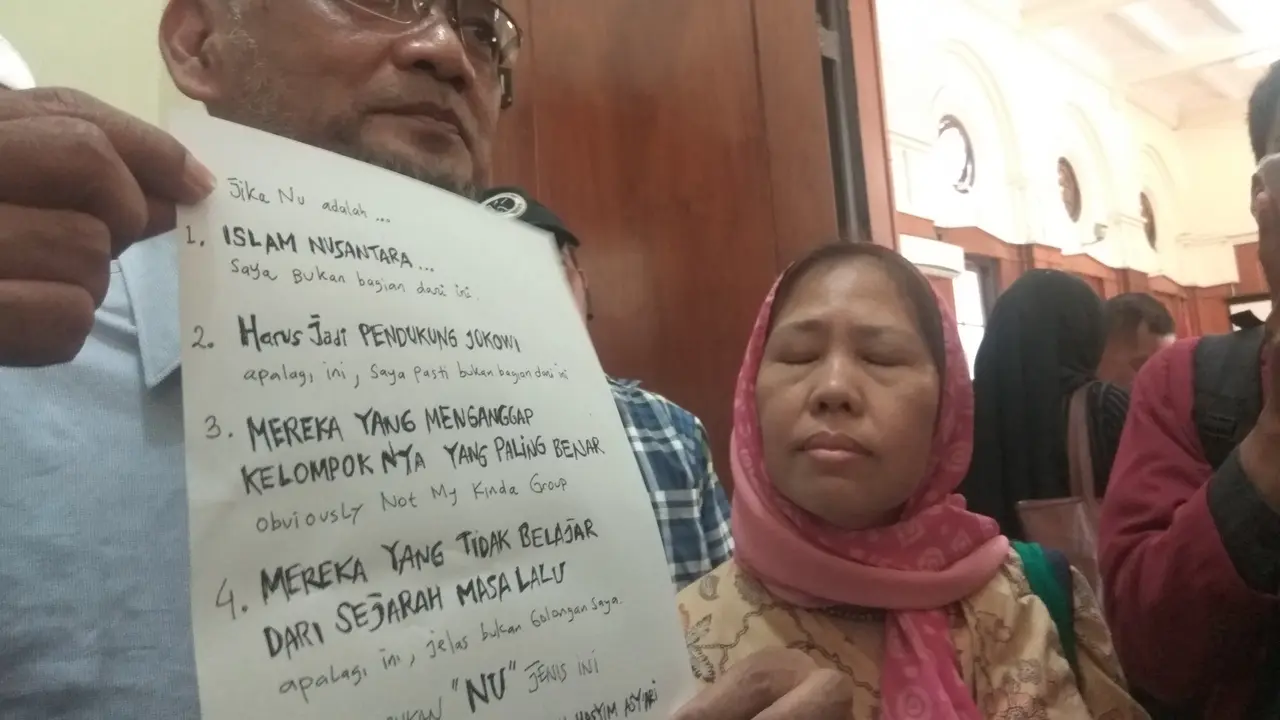 Jika NU adalah ...
1. ISLAM NUSANTARA ...
Saya Bukan bagian dari ini.
2. Harus Jadi PENDUKUNG JOKOWI
apalagi ini, Saya Pasti bukan bagian dari ini
3. MEREKA YANG MENGANGGAP
KELOMPOK NYA YANG PALING BENAR
Obviously Not My Kinda Group
4. MEREKA YANG TIDAK BELAJAR
DARI SEJARAH MASA LALU
apalagi ini, jelas bukan Golongan Saya.
BUKAN "NU" JENIS INI
HASYIM ASY'ARI